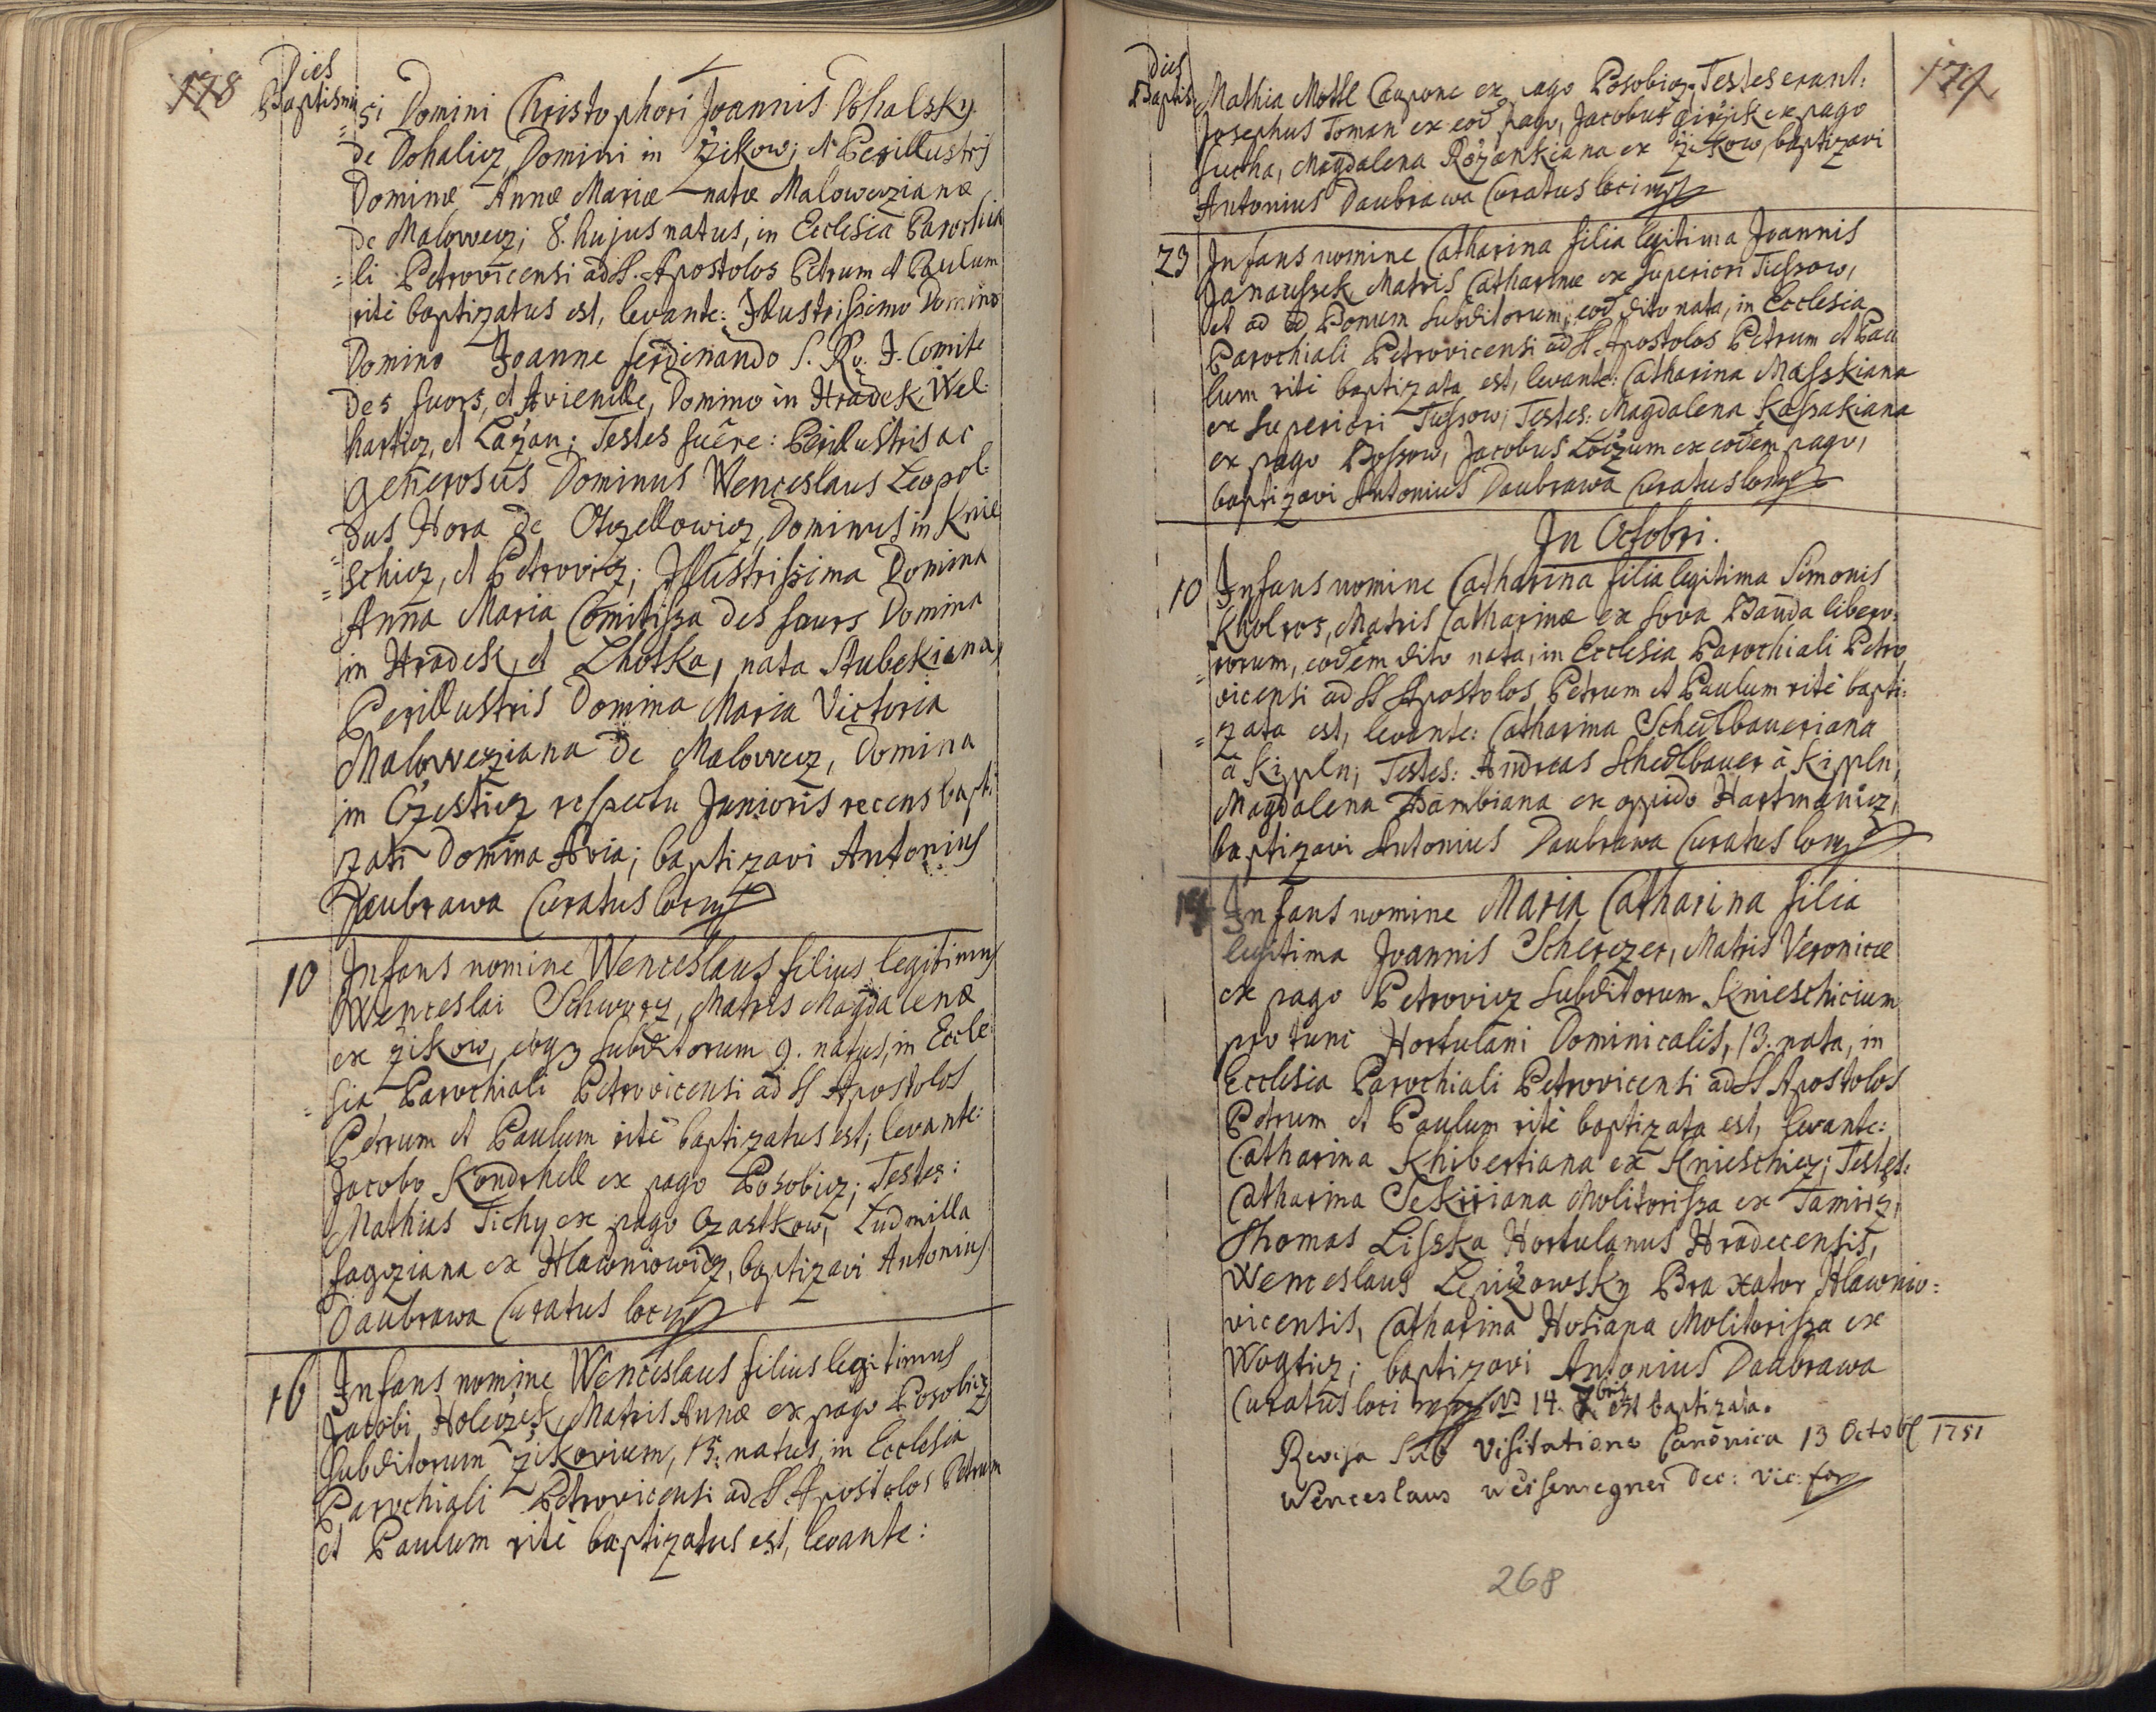 178
Dies
Baptismi
si Domini Christophori Joannis Dohalsky
de Dohalicz, Domini in Žikow; et Perillustris
Dominæ Annæ Mariæ natæ Malowezianæ
de Malowecz; 8. hujus natus, in Ecclesia Parochia
=li Petrovicensi ad SS. Apostolos Petrum et Paulum
rité baptizatus est, levante: Illustrissimo Domino
Domino Joanne Ferdinando S. R. I. Comite
des Fuors, et Avienille, Domino in Hradek, Wel-
harticz, et Lažan; Testes fuêre: Perillustris ac
Generosus Dominus Wenceslaus Leopol-
=dus Hora de Otzellowicz, Dominus in Knie
=schicz, et Petrovicz; Illustrissima Domina
Anna Maria Comitissa des Fours Domina
in Hradek, et Lhotka, nata Stubekiana,
Perillustris Domina Maria Victoria
Maloweziana de Malowecz, Domina
in Czesticz respectu Junioris recens bapti
zati Domina Avia; baptizavi Antonius
Daubrawa Curatus loci mp
10 Infans nomine Wenceslaus filius legitimus
Wenceslai Schwarz, Matris Magdalenæ
ex Žikow, subditorum 9. natus, in Eccle
=sia Parochiali Petrovicensi ad SS Apostolos
Petrum et Paulum rité baptizatus est; levante:
Jacobo Kondrhell ex pago Posobicz; Testes:
Mathias Tichy ex pago Czastkow, Ludmilla
Fagziana ex Hlawniowicz, baptizavi Antonius
Daubrawa Curatus loci mp
16 Infans nomine Wenceslaus filius legitimus
Jacobi Holeczek, Matris Annæ ex pago Posobicz
subditorum Žikovium, 15. natus, in Ecclesia
Parochiali Petrovicensi ad SS. Apostolos Petrum
et Paulum rité baptizatus est, levante:
179
Dies
Baptis.
Mathia Mottl Caupone ex pago Posobicz; Testes erant:
Josephus Toman ex eod pago, Jacobus Girzik ex pago
Sucha, Magdalena Rožankiana ex Žikow, baptizavi
Antonius Daubrawa Curatus loci mp
23 Infans nomine Catharina filia legitima Joannis
Janaussek, Matris Catharinæ ex Superiori Tiessow,
et ad Bonum subditorum, eod dito nata, in Ecclesia
Parochiali Petrovicensi ad SS. Apostolos Petrum et Pau
lum rité baptizata est, levante: Catharina Masskiana
ex Superiori Tiessow; Testes: Magdalena Kassakiana
ex pago Bossow, Jacobus Loužum ex eodem pago,
baptizavi Antonius Daubrawa Curatus loci mp
In Octobri.
10 Infans nomine Catharina filia legitima Simonis
Kholros, Matris Catharinæ ex Sova Bauda libero-
=rorum, eodem dito nata, in Ecclesia Parochiali Petro
=vicensi ad SS Apostolos Petrum et Paulum rité bapti-
=zata est, levante: Catharina Schedlbaueriana
à Kippln; Testes: Andreas Schedlbauer à Kippln,
Magdalena Bambiana ex oppido Hartmanicz,
baptizavi Antonius Daubrawa Curatus loci mp
14 Infans nomine Maria Catharina filia
legitima Joannis Scherczer, Matris Veronicæ
ex pago Petrovicz subditorum Knieschicium
pro tunc Hortulani Dominicalis, 13. nata, in
Ecclesia Parochiali Petrovicensi ad SS Apostolos
Petrum et Paulum rité baptizata est, levante:
Catharina Khibertiana ex Knieschicz; Testes:
Catharina Sekiriana Molitorissa ex Tamicz,
Thomas Lisska Hortulanus Hradecensis,
Wenceslaus Leružowsky Braxator Hlawnio-
vicensis, Catharina Hosiana Molitorissa ex
Wogticz; baptizavi Antonius Daubrawa
Curatus loci mp 14. bris est baptizata.
Revisa sub Visitatione Canonica 13 Octobr 1751
Wenceslaus Weissenregner Dec: Vic: for
268